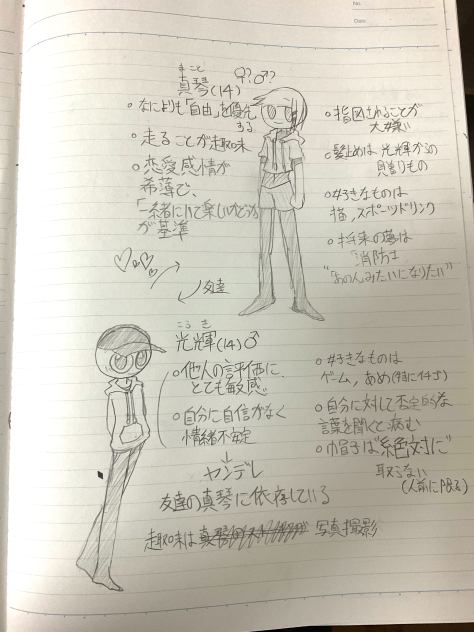 No.
Date
まこと
真琴(14) ♀??♂??
・なによりも「自由」を優先
する
・走ることが趣味
・恋愛感情が
希薄で、
「一緒にいて楽しいかどうか」
が基準
・指図されることが
大嫌い
・髪止めは光輝からの
・好きなものは
猫、スポーツドリンク
・将来の夢は
消防士
"あの人みたいになりたい"
友達
こうき
光輝(14)♂
・他人の評価に
とても敏感
・自分に自信がなく
情緒不安定
↓
ヤンデレ
友達の真琴に依存している
趣味は 写真撮影
・好きなものは
ゲーム、あめ(特にイチゴ)
・自分に対して否定的な
言葉を聞くと病む
・帽子は"絶対に"
取らない
(人前に限る)